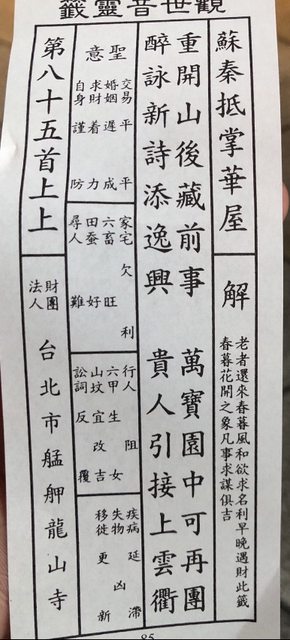 觀世音靈籤
蘇秦抵掌華屋
解
老者還來春暮風和欲求名利早晚遇財此籤
春暮花開之象凡事求謀俱吉
重開山後藏前事 萬寶園中可再團
醉詠新詩添逸興 貴人引接上雲衢
聖意
交易 平 平
婚姻 遲 成
求財 着 力
自身 謹 防
家宅 欠 利
六畜 旺
田蚕 好
尋人 難
行人 阻
六甲 生 女
山坟 宜 改 吉
訟詞 反 覆
疾病 延 滯
失物 凶
移徙 更 新
第八十五首上上
財團
法人
台北市艋舺龍山寺
85